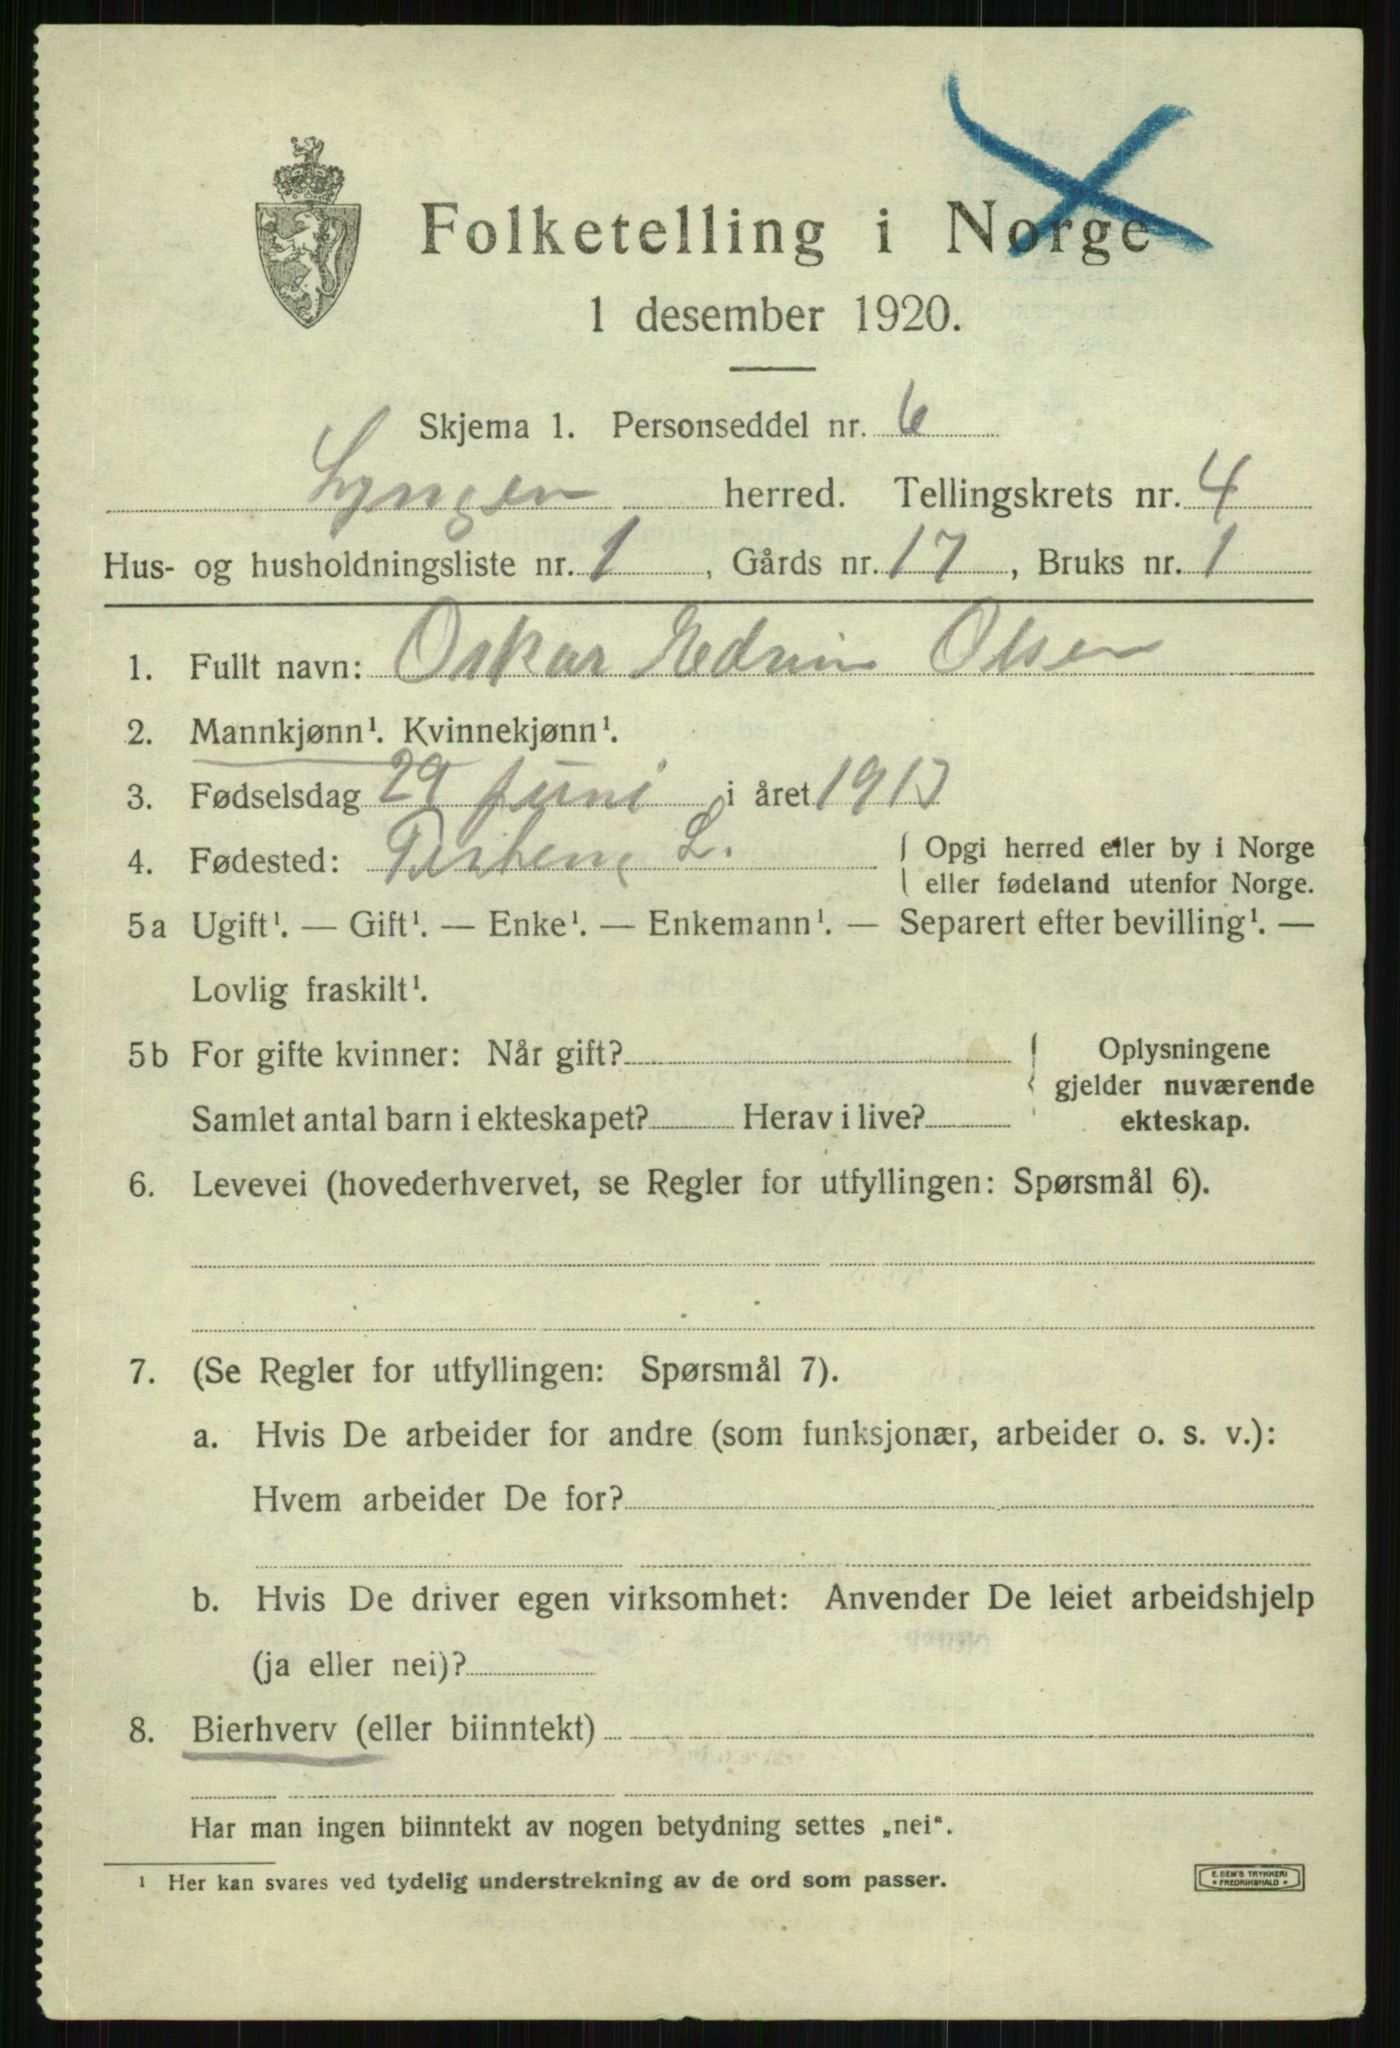 Folketelling i Norge
1 desember 1920.
Skjema 1. Personseddel nr. 6
Lyngen herred. Tellingskrets nr. 4
Hus- og husholdningsliste nr. 1, Gårds nr. 17, Bruks nr. 1
1. Fullt navn: Oskar Edvin Olsen
2. Mannkjønn¹. Kvinnekjønn¹.
3. Fødselsdag 29 juni i året 1913
4. Fødested: L. { Opgi herred eller by i Norge
eller fødeland utenfor Norge.
5a Ugift¹. — Gift¹. — Enke¹. — Enkemann¹. — Separert efter bevilling¹. —
Lovlig fraskilt¹.
5b For gifte kvinner: Når gift? { Oplysningene
gjelder nuværende
Samlet antal barn i ekteskapet? Herav i live? ekteskap.
6. Levevei (hovederhvervet, se Regler for utfyllingen: Spørsmål 6).
7. (Se Regler for utfyllingen: Spørsmål 7).
a. Hvis De arbeider for andre (som funksjonær, arbeider o. s. v.):
Hvem arbeider De for?
b. Hvis De driver egen virksomhet: Anvender De leiet arbeidshjelp
(ja eller nei)?
8. Bierhverv (eller biinntekt)
Har man ingen biinntekt av nogen betydning settes „nei“.
¹ Her kan svares ved tydelig understrekning av de ord som passer.
E. SEM'S TRYKKERI
* FREDRIKSHALD *